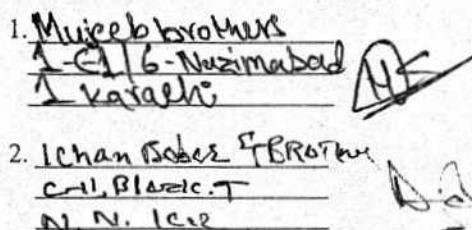 1. Mujeeb brothers
1-E1/6-Nazimabad
1 Karachi
2. Khan Baba & BROTHer
C-11, Block.T
N. N. Kar